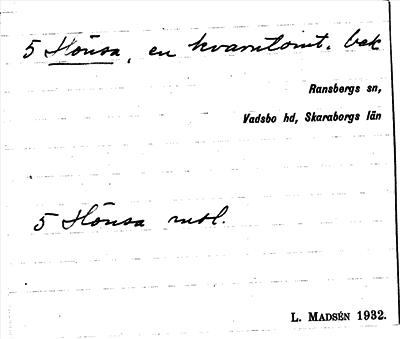 5 Hönsa, en kvarntomt. bek
Ransbergs sn,
Vadsbo hd, Skaraborgs län
5 Hönsa mtl.
L. MADSÉN 1932.